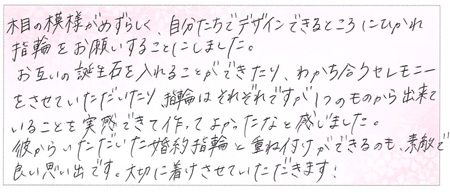 木目の模様がめずらしく、自分たちでデザインできるところにひかれ
指輪をお願いすることにしました。
お互いの誕生石を入れることができたり、わかち合うセレモニー
をさせていただいたり、指輪はそれぞれですが1つのものから出来て
いることを実感できて作ってよかったなと感じました。
彼からいただいた婚約指輪と重ねづけができるのも、素敵で
良い思い出です。大切に着けさせていただきます!